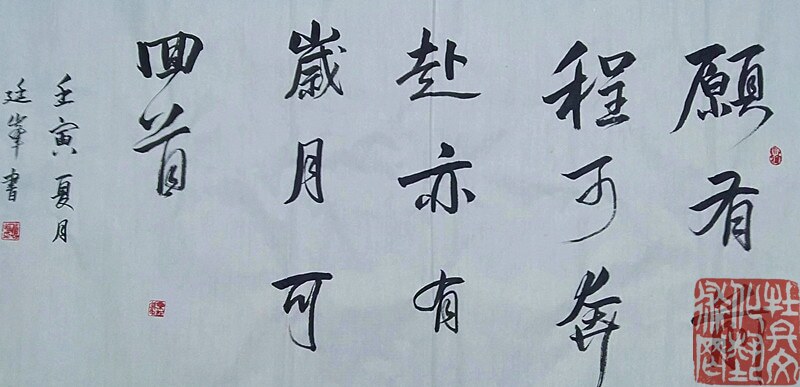 願有
程可奔
赴亦有
歲月可
回首
壬寅夏月
廷峯書